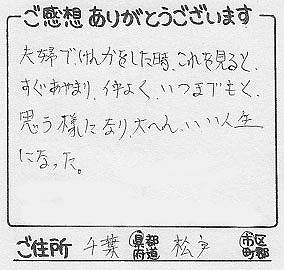 ご感想 ありがとうございます
夫婦でけんかをした時、これを見ると、
すぐあやまり、仲よく、いつまでもと、
思う様になり、大へん、いい人生
になった。
ご住所 千葉 都道府県 松戸 市区町郡